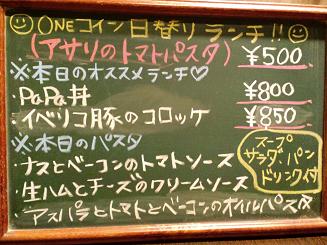 ☺ONEコイン日替りランチ!!☺
(アサリのトマトパスタ) ¥500
※本日のオススメランチ♡
・PaPa丼 ¥800
・イベリコ豚のコロッケ ¥850
※本日のパスタ
・ナスとベーコンのトマトソース
・生ハムとチーズのクリームソース
・アスパラとトマトとベーコンのオイルパスタ
スープ
サラダ・パン
ドリンク付